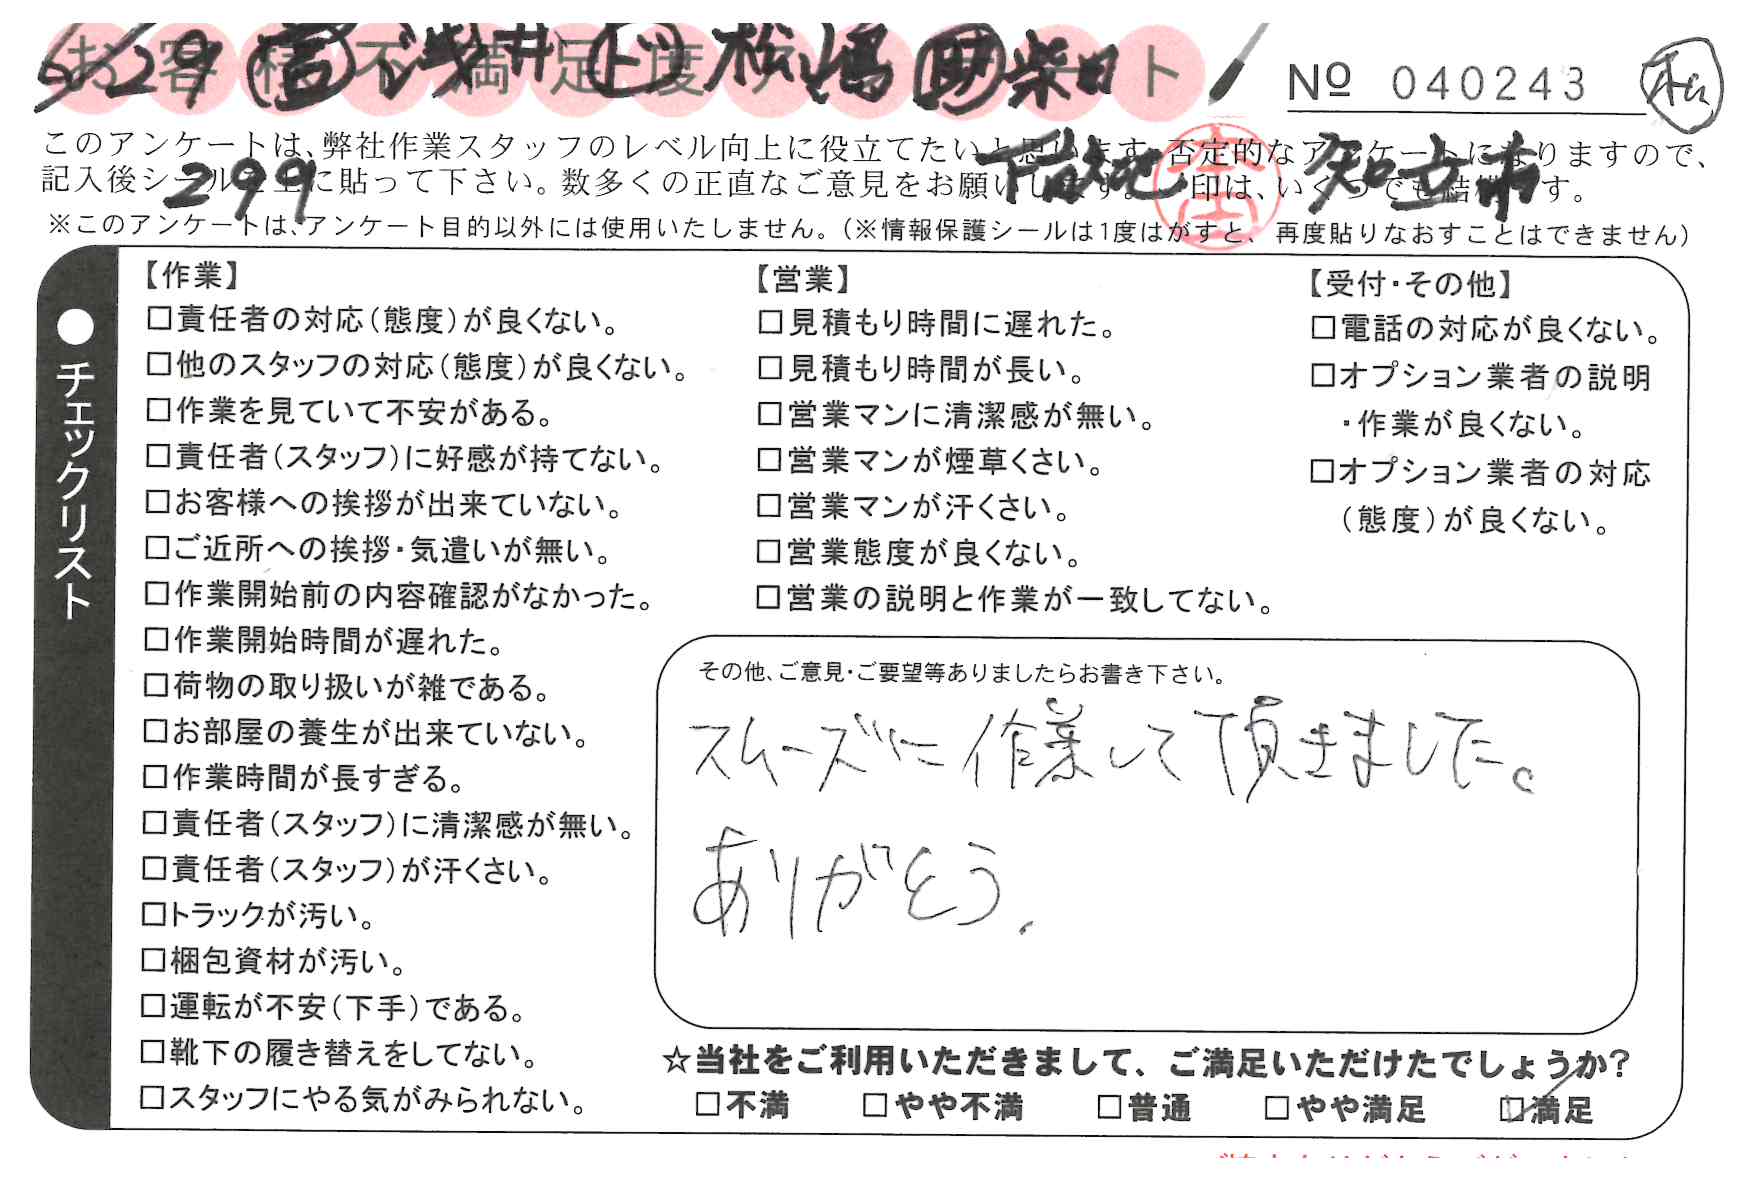 お客様不満足度アンケート
5/29 営 浅井 ド 松嶋 助 柴田
№ 040243 松
このアンケートは、弊社作業スタッフのレベル向上に役立てたいと思います。否定的なアンケートになりますので、
記入後シールを上に貼って下さい。数多くの正直なご意見をお願いします。 印は、いくつでも結構です。
299 下地 知立市
※このアンケートは、アンケート目的以外には使用いたしません。(※情報保護シールは1度はがすと、再度貼りなおすことはできません)
●チェックリスト
【作業】
□責任者の対応(態度)が良くない。
□他のスタッフの対応(態度)が良くない。
□作業を見ていて不安がある。
□責任者(スタッフ)に好感が持てない。
□お客様への挨拶が出来ていない。
□ご近所への挨拶・気遣いが無い。
□作業開始前の内容確認がなかった。
□作業開始時間が遅れた。
□荷物の取り扱いが雑である。
□お部屋の養生が出来ていない。
□作業時間が長すぎる。
□責任者(スタッフ)に清潔感が無い。
□責任者(スタッフ)が汗くさい。
□トラックが汚い。
□梱包資材が汚い。
□運転が不安(下手)である。
□靴下の履き替えをしてない。
□スタッフにやる気がみられない。
【営業】
□見積もり時間に遅れた。
□見積もり時間が長い。
□営業マンに清潔感が無い。
□営業マンが煙草くさい。
□営業マンが汗くさい。
□営業態度が良くない。
□営業の説明と作業が一致してない。
【受付・その他】
□電話の対応が良くない。
□オプション業者の説明
・作業が良くない。
□オプション業者の対応
(態度)が良くない。
その他、ご意見・ご要望等ありましたらお書き下さい。
スムーズに作業して頂きました。
ありがとう.
☆当社をご利用いただきまして、ご満足いただけたでしょうか?
□不満 □やや不満 □普通 □やや満足 ☑満足